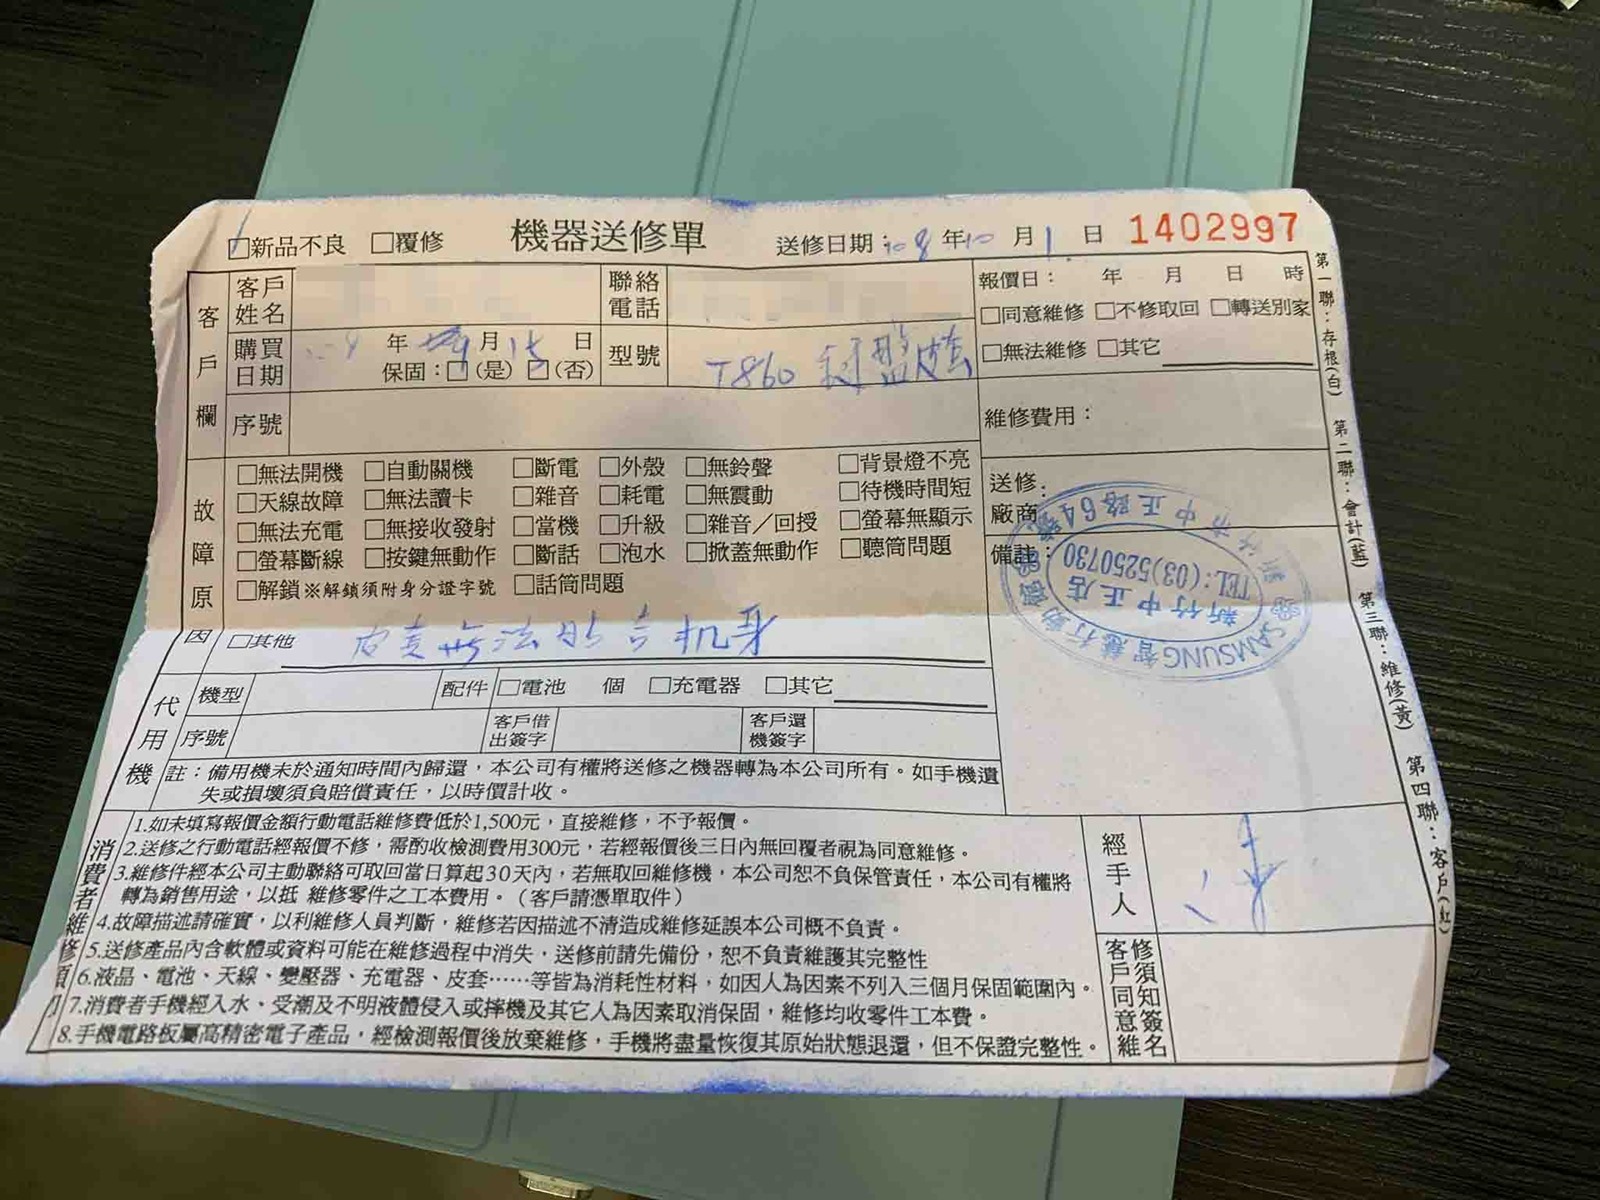 □新品不良 □覆修 機器送修單 送修日期：108年10月1日 1402997
客戶欄
客戶姓名 聯絡電話
購買日期 年 9月15日 保固：□(是) □(否) 型號 T860 皮套
序號
報價日： 年 月 日 時
□同意維修 □不修取回 □轉送別家
□無法維修 □其它
維修費用：
送修廠商：
備註：
SAMSUNG智慧行動館
新竹中正店
TEL:(03)5250730
市中正路64號
故障原因
□無法開機 □自動關機 □斷電 □外殼 □無鈴聲 □背景燈不亮
□天線故障 □無法讀卡 □雜音 □耗電 □無震動 □待機時間短
□無法充電 □無接收發射 □當機 □升級 □雜音／回授 □螢幕無顯示
□螢幕斷線 □按鍵無動作 □斷話 □泡水 □掀蓋無動作 □聽筒問題
□解鎖※解鎖須附身分證字號 □話筒問題
□其他 皮套無法貼合机身
代用機
機型 配件 □電池 個 □充電器 □其它
序號 客戶借出簽字 客戶還機簽字
註：備用機未於通知時間內歸還，本公司有權將送修之機器轉為本公司所有。如手機遺
失或損壞須負賠償責任，以時價計收。
消費者維修須
1.如未填寫報價金額行動電話維修費低於1,500元，直接維修，不予報價。
2.送修之行動電話經報價不修，需酌收檢測費用300元，若經報價後三日內無回覆者視為同意維修。
3.維修件經本公司主動聯絡可取回當日算起30天內，若無取回維修機，本公司恕不負保管責任，本公司有權將
轉為銷售用途，以抵 維修零件之工本費用。（客戶請憑單取件）
4.故障描述請確實，以利維修人員判斷，維修若因描述不清造成維修延誤本公司概不負責。
5.送修產品內含軟體或資料可能在維修過程中消失，送修前請先備份，恕不負責維護其完整性
6.液晶、電池、天線、變壓器、充電器、皮套……等皆為消耗性材料，如因人為因素不列入三個月保固範圍內。
7.消費者手機經入水、受潮及不明液體侵入或摔機及其它人為因素取消保固，維修均收零件工本費。
8.手機電路板屬高精密電子產品，經檢測報價後放棄維修，手機將盡量恢復其原始狀態退還，但不保證完整性。
經手人
客戶同意維修須知簽名
第一聯：存根(白) 第二聯：會計(藍) 第三聯：維修(黃) 第四聯：客戶(紅)